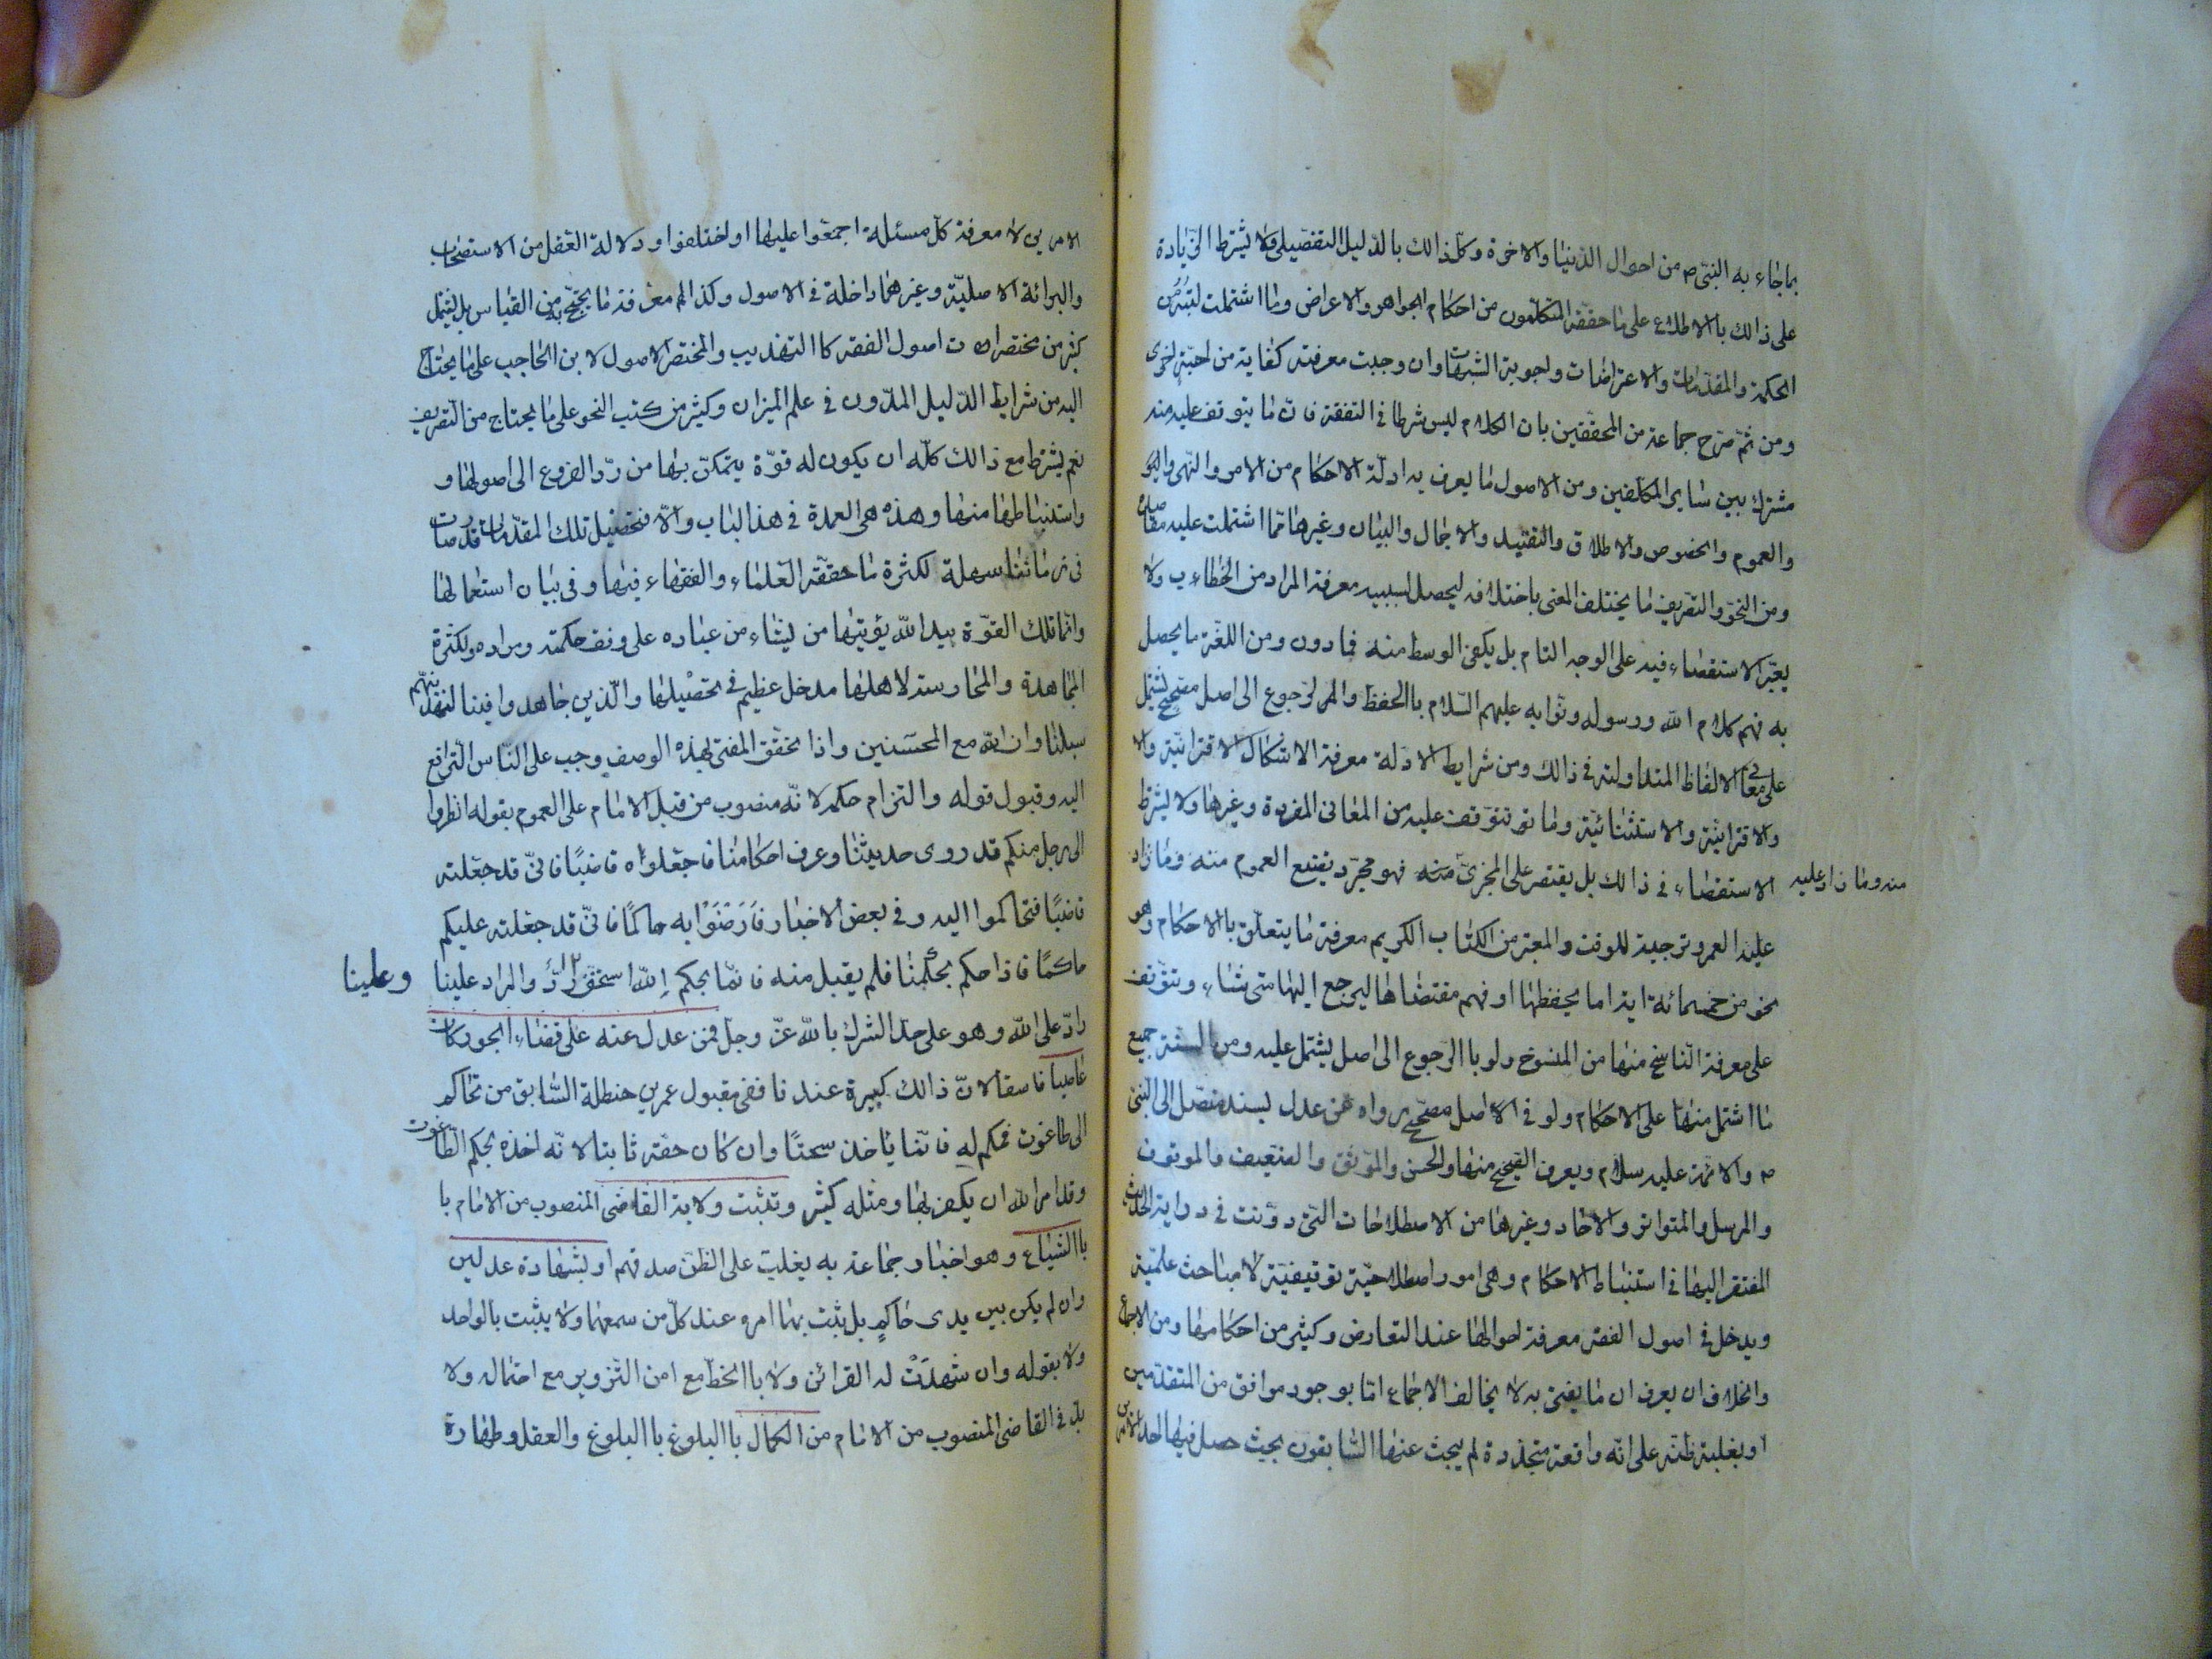 بماجاء به النبی ص من احوال الدنیا والاخرة وکل ذالك بالدلیل التفصیلی ولا یشترط الزیادة
علی ذالك بالاطلاع علی ما حققه المتکلمون من احکام الجواهر والاعراض وما اشتملت کتبه من
الحکمة والمقدمات والاعتراضات واجوبة الشبهات وان وجبت معرفته کفایة من جهة اخری
ومن ثم صرح جماعة من المحققین بان الکلام لیس شرطا فی التفقه فان ما یتوقف علیه منه
مشترك بین سایر المکلفین ومن الاصول ما یعرف به ادلة الاحکام من الامر والنهی
والعموم والخصوص والاطلاق والتقیید والاجمال والبیان وغیرها مما اشتملت علیه مقاصده
ومن النحو والتصریف ما یختلف المعنی باختلافه لیحصل بسببه معرفة المراد من الخطاب ولا
یعتبر الاستقصاء فیه علی الوجه التام بل یکفی الوسط منه فما دون ومن اللغة ما یحصل
به فهم کلام الله ورسوله ونوابه علیهم السلام باالحفظ والرجوع الی اصل مصحح یشتمل
علی معانی الالفاظ المتداولة فی ذالك ومن شرایط الادلة معرفة الاشکال الاقترانیة والا
والاقترانیة والاستثنائیة وما تتوقف علیه من المعانی المفردة وغیرها ولا یشترط
الاستقصاء فی ذالك بل یقتصر علی المجزی منه فهو مجرد تضییع العمر منه وما زاد
منه وما زاد علیه
علیه العمر وترجیة للوقت والمعتبر من الکتاب الکریم معرفة ما یتعلق باالاحکام وهو
نحو من خمسمائة ایة اما بحفظها او فهم مقتضاها لیرجع الیها متی شاء ویتوقف
علی معرفة الناسخ منها من المنسوخ ولو باالرجوع الی اصل یشتمل علیه ومن السنة جمیع
ما اشتمل منها علی الاحکام ولو فی الاصل مصحح رواه عن عدل بسند متصل الی النبی
ص والائمة علیه سلام ویعرف الصحیح منها والحسن والموثق والضعیف والموقوف
والمرسل والمتواتر والاحاد وغیرها من الاصطلاحات التی دونت فی درایة الحدیث
المفتقر الیها فی استنباط الاحکام وهی امور اصطلاحیة توقیفیة لا مباحث علمیة
ویدخل فی اصول الفقه معرفة احوالها عند التعارض وکثیر من احکامها ومن الاجماع
والخلاف ان یعرف ان ما یفتی به لا یخالف الاجماع اما بوجود موافق من المتقدمین
او بغلبة ظنه علی انه واقعة متجددة لم یبحث عنها السابقون بحیث حصل فیها احد الامرین
الامرین لا معرفة کل مسئلة اجمعوا علیها او اختلفوا ودلالة العقل من الاستصحاب
والبرائة الاصلیة وغیرهما داخلة فی الاصول وکذا معرفة ما یحتج به من القیاس بل یشتمل
کثیر من مختصرات اصول الفقه کاالتهذیب والمختصر الاصول لابن الحاجب علی ما یحتاج
الیه من شرایط الدلیل المدون فی علم المیزان وکثیر من کتب النحو علی ما یحتاج من التصریف
نعم یشترط مع ذالك کله ان یکون له قوة یتمکن بها من رد الفروع الی اصولها و
واستنباطها منها وهذه هی العمدة فی هذا الباب والا فتحصیل تلك المقدمات قد صارت
فی زماننا سهلة لکثرة ما حققه العلماء والفقهاء فیها وفی بیان استعمالها
وانما تلك القوة بید الله یؤتیها من یشاء من عباده علی وفق حکمته ومراده ولکثرة
المجاهدة والممارسة لاهلها مدخل عظیم فی تحصیلها والذین جاهدوا فینا لنهدینهم
سبلنا وان الله مع المحسنین واذا تحقق المفتی بهذه الوصف وجب علی الناس الترافع
الیه وقبول قوله والتزام حکمه لانه منصوب من قبل الامام علی العموم بقوله انظروا
الی رجل منکم قد روی حدیثنا وعرف احکامنا فاجعلواه قاضیًا فانی قد جعلته
قاضیًا فتحاکموا الیه وفی بعض الاخبار فارضوا به حاکمًا فانی قد جعلته علیکم
حاکمًا فاذا حکم بحکمنا فلم یقبل منه فانما بحکم الله استخف والراد علینا
وعلینا
راد علی الله وهو علی حد الشرك بالله عز وجل فمن عدل عنه علی قضاء الجور کان
عاصیا فاسقا لان ذالك کبیرة عندنا ففی مقبول عمر بن حنظلة السابق من تحاکم
الی طاغوت فحکم له فانما یاخذ سحتًا وان کان حقه ثابتا لانه اخذه بحکم الطاغوت
وقد امر الله ان یکفر بها ومثله کثیر وتثبت ولایة القاضی المنصوب من الامام با
باالشیاع وهو اخبار جماعة به یغلب علی الظن صدقهم او بشهادة عدلین
وان لم یکن بین یدی حاکم بل یثبت بهما امره عند کل من سمعهما ولا یثبت بالواحد
ولا بقوله وان شهدت له القرائن ولا باالخط مع امن التزویر مع احتماله ولا
بد فی القاضی المنصوب من الامام من الکمال باالبلوغ باالبلوغ والعقل وطهارة